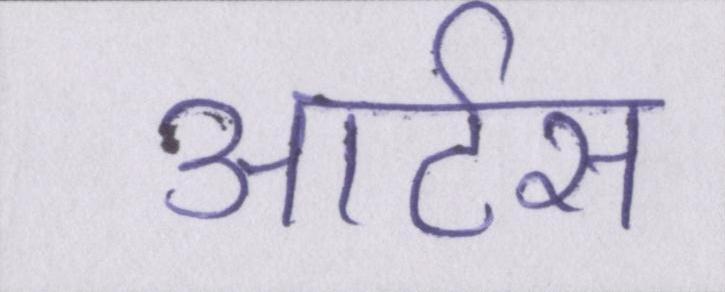 आर्टस